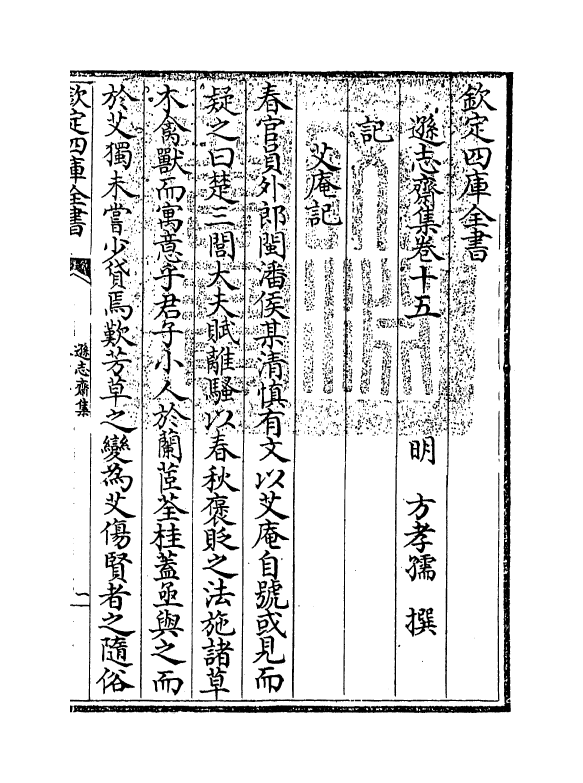 欽定四庫全書
遜志齋集卷十五
明　方孝孺　撰
記
艾庵記
春官員外郎閩潘侯某清慎有文以艾庵自號或見而
疑之曰楚三閭大夫賦離騷以春秋褒貶之法施諸草
木禽獸而寓意乎君子小人於蘭茝荃桂蓋亟與之而
於艾獨未嘗少貸焉歎芳草之變為艾傷賢者之隨俗
欽定四庫全書
遜志齋集